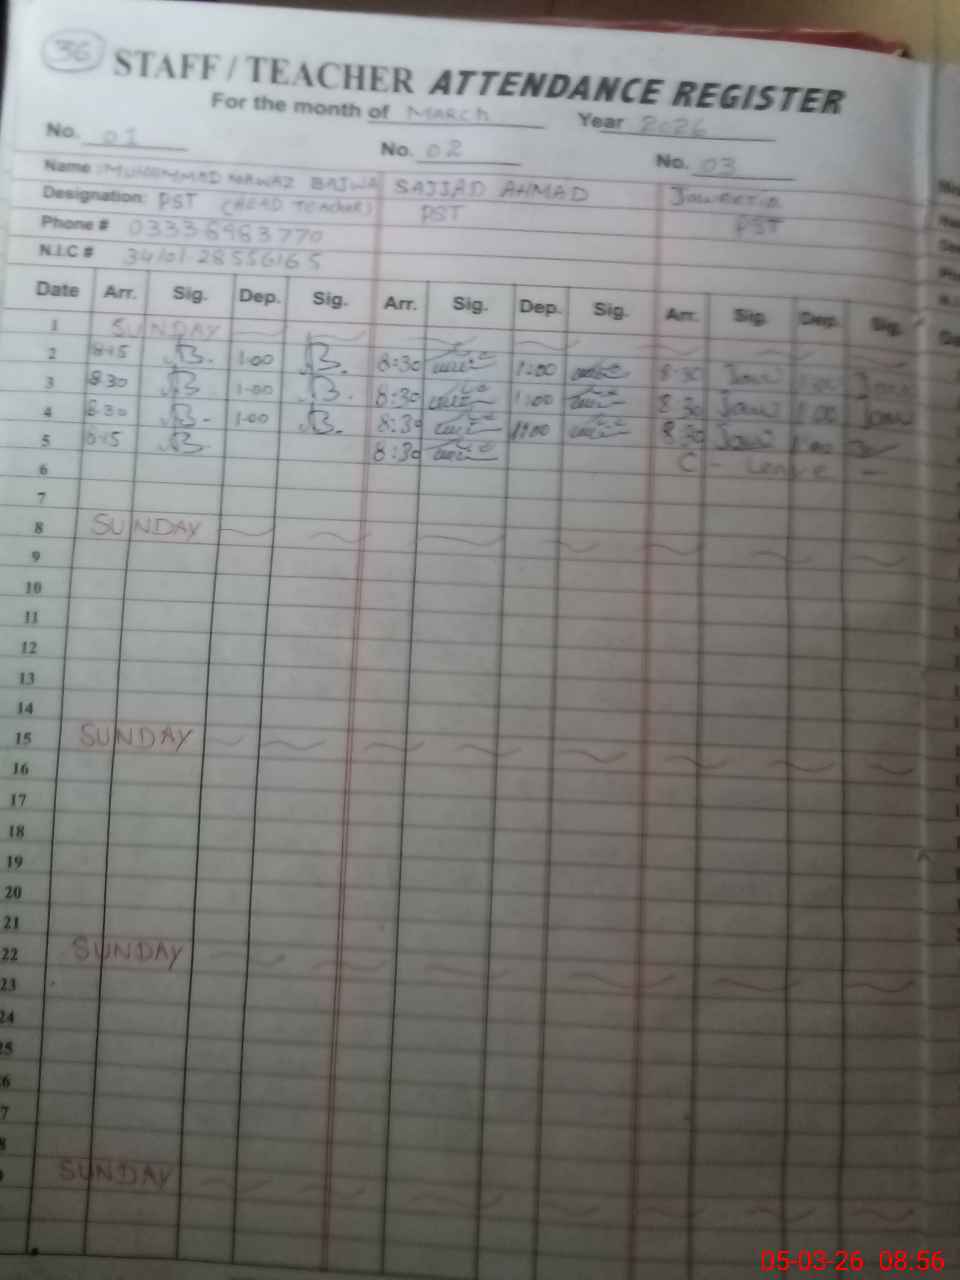 36
STAFF / TEACHER ATTENDANCE REGISTER
For the month of MARCH Year 2026
No. 01 No. 02 No. 03
Name : MUHAMMAD NAWAZ BAJWA SAJJAD AHMAD
Designation: PST (HEAD TEACHER) PST PST
Phone # 03336963770
N.I.C #
Date Arr. Sig. Dep. Sig. Arr. Sig. Dep. Sig. Arr. Sig. Dep. Sig.
1 SUNDAY
2 8:15 1:00 8:30 1:00 8:30 1:00
3 8:30 1:00 8:30 1:00 8:30 1:00
4 8:30 1:00 8:30 1:00 8:30 1:00
5 8:15 8:30 C - Leave -
6
7
8 SUNDAY
9
10
11
12
13
14
15 SUNDAY
16
17
18
19
20
21
22 SUNDAY
23
24
25
6
7
8
SUNDAY
05-03-26 08:56